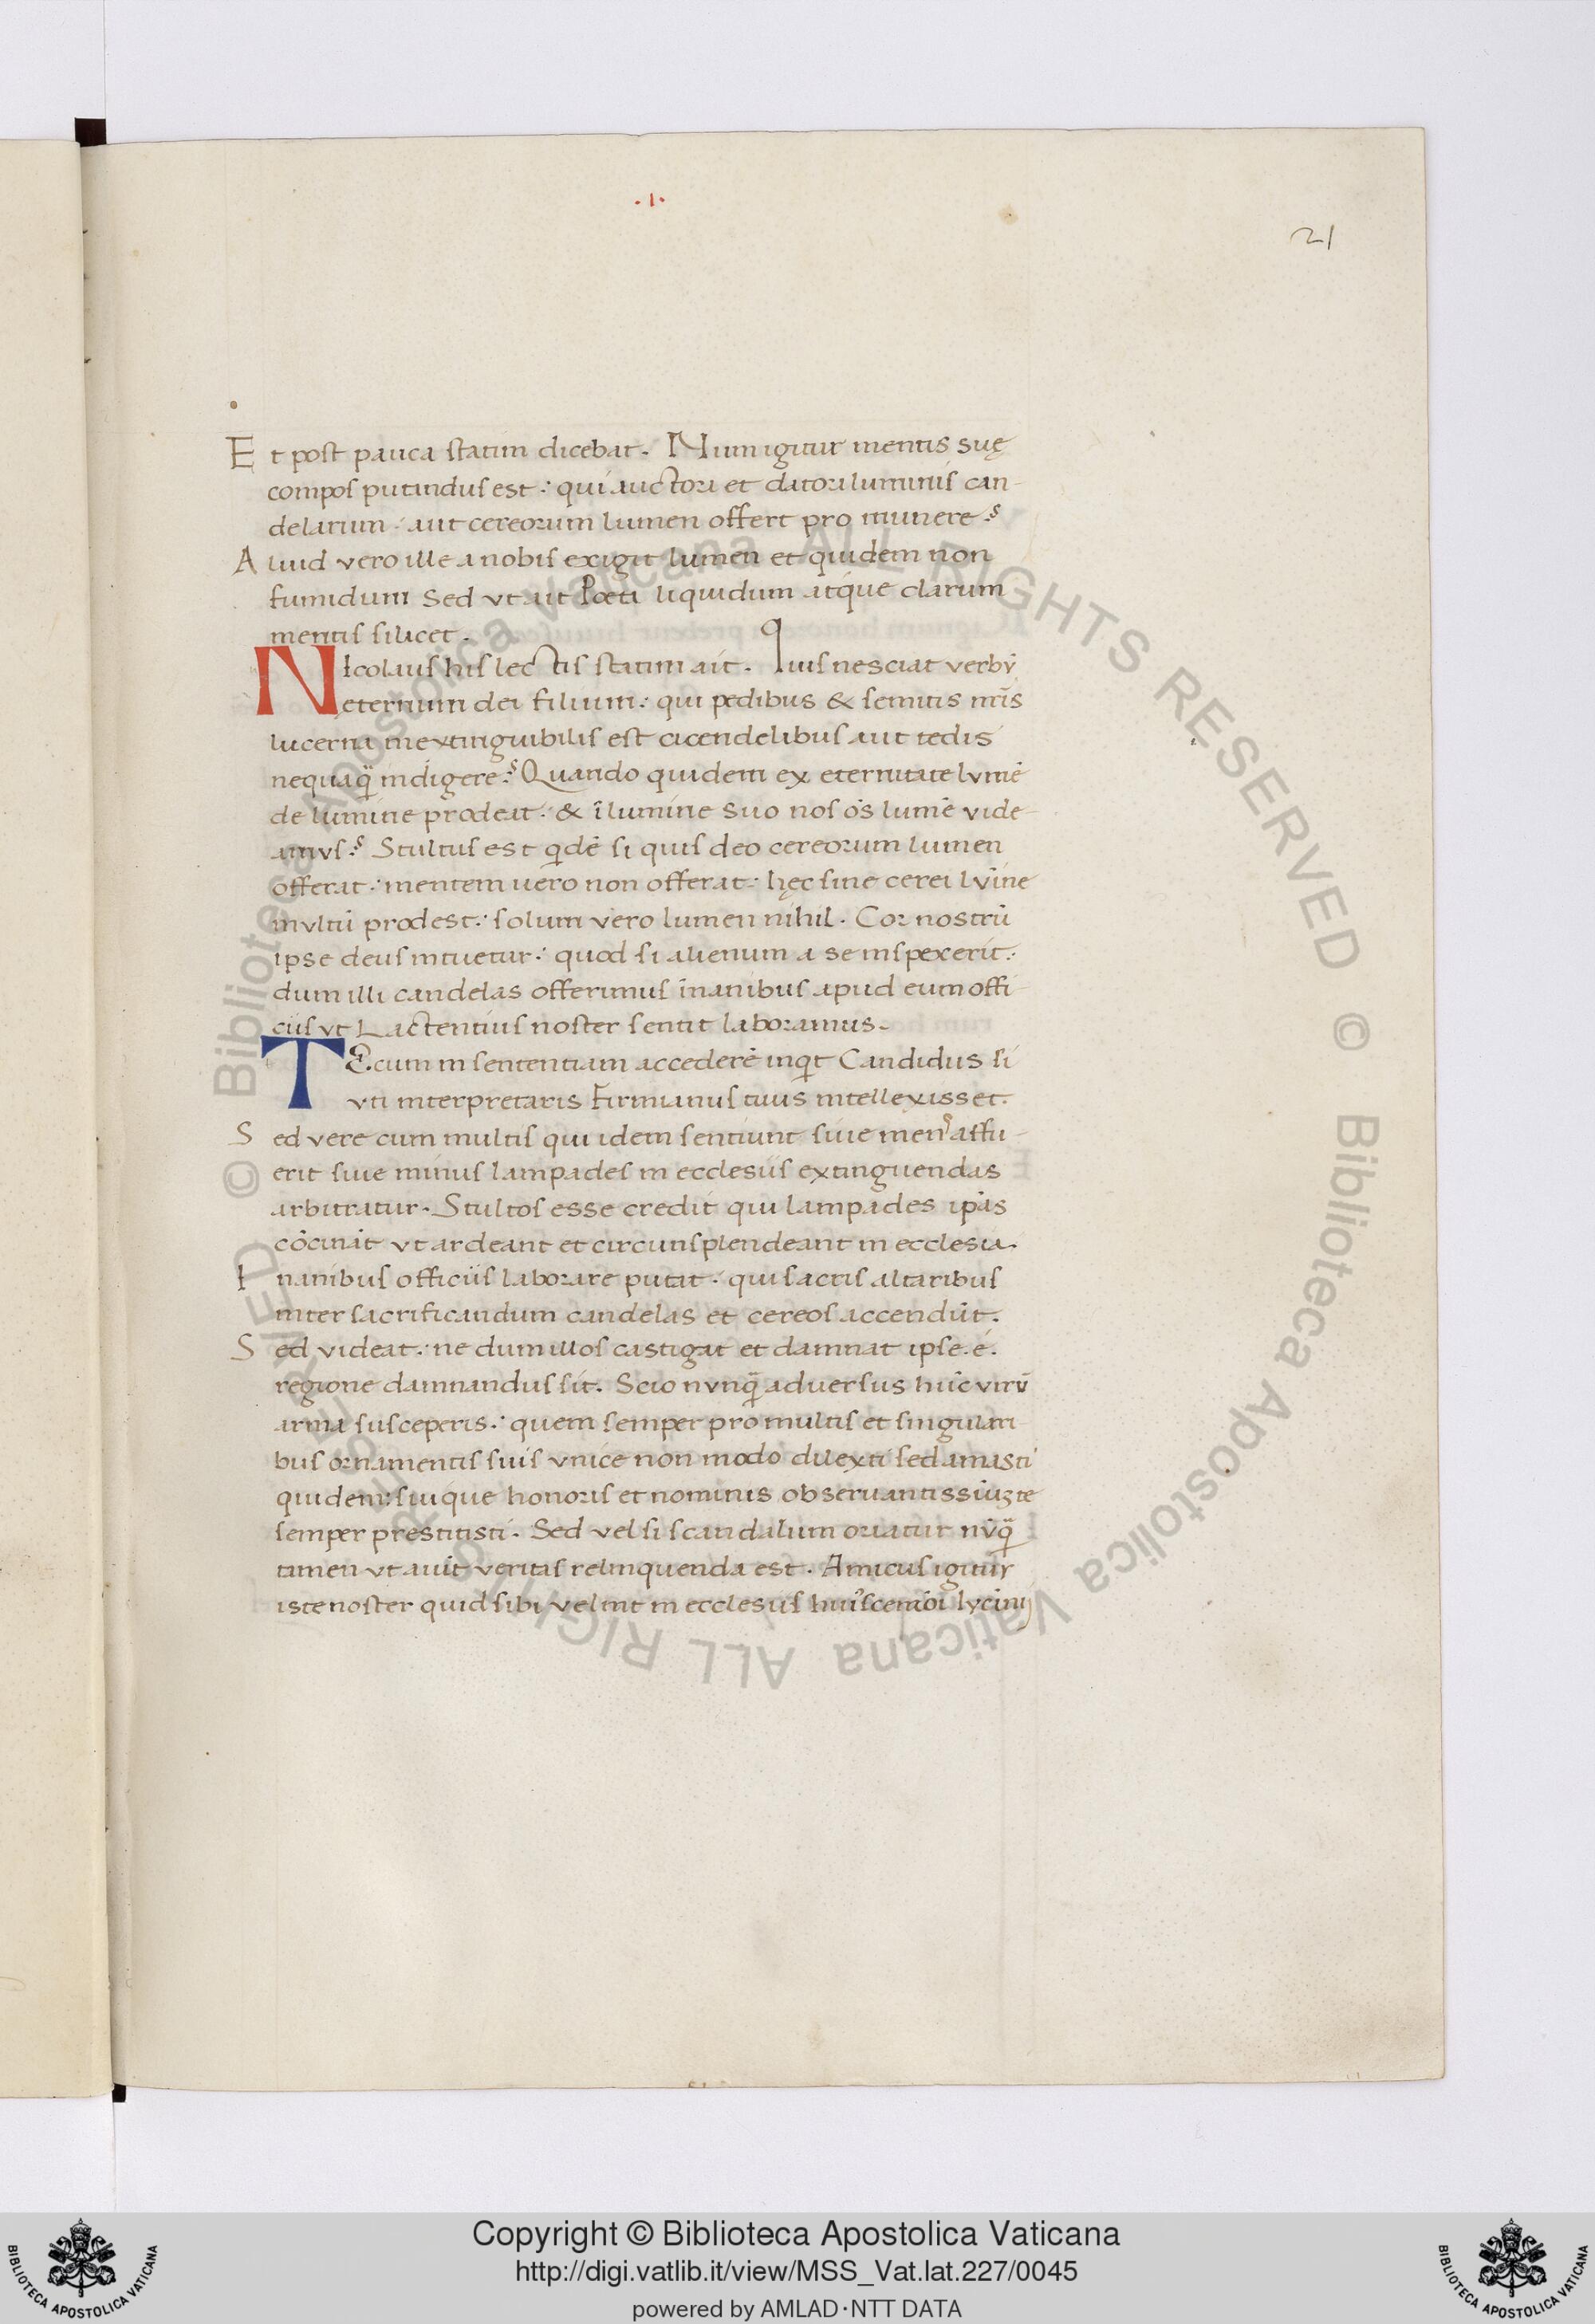 .I.
21
Et post pauca statim dicebat. Num igitur mentis suę
compos putandus est: qui auctori et datori luminis can-
delarum. aut cereorum lumen offert pro munere?
Aliud vero ille a nobis exigit lumen et quidem non
fumidum Sed vt ait Poeta liquidum atque clarum
mentis silicet.
Nicolaus his lectis statim ait. Quis nesciat verbū
ęternum dei filium: qui pedibus & semitis nr̄is
lucerna inextinguibilis est cicendelibus aut tedis
nequaq̄ indigere? Quando quidem ex eternitate lvmē
de lumine prodeat: & ī lumine suo nos oēs lumē vide-
amvs? Stultus est qdē si quis deo cereorum lumen
offerat: mentem uero non offerat: hęc sine cerei lvīne
mvltū prodest: solum vero lumen nihil. Cor nostrū
ipse deus intuetur: quod si alienum a se inspexerit:
dum illi candelas offerimus īnanibus apud eum offi-
ciis vt Lactentius noster sentit laboramus.
TEcum in sententiam accederē inqt Candidus si
vti interpretaris Firmianus tuus intellexisset.
Sed vere cum multis qui idem sentiunt siue mens affu-
erit siue minus lampades in ecclesiis extinguendas
arbitratur. Stultos esse credit qui lampades ipās
cōcināt vt ardeant et circunsplendeant in ecclesia.
Inanibus officiis laborare putat: qui sacris altaribus
inter sacrificandum candelas et cereos accendūt.
Sed videat: ne dum illos castigat et damnat ipse. é.
regione damnandus sit. Scio nvnq̄ aduersus hūc virū
arma susceperis: quem semper pro multis et singulari-
bus ornamentis suis vnice non modo dilexti sed amasti
quidem: suique honoris et nominis obseruantissiūȝ te
semper prestitisti. Sed vel si scandalum oriatur nūq̄
tamen vt auit veritas relinquenda est. Amicus igitur
iste noster quid sibi velint in ecclesiis huiuscemōi lycini
Copyright © Biblioteca Apostolica Vaticana
http://digi.vatlib.it/view/MSS_Vat.lat.227/0045
powered by AMLAD·NTT DATA
BIBLIOTECA APOSTOLICA VATICANA
BIBLIOTECA APOSTOLICA VATICANA
© Biblioteca Apostolica Vaticana ALL RIGHTS RESERVED © Biblioteca Apostolica Vaticana ALL RIGHTS RESERVED